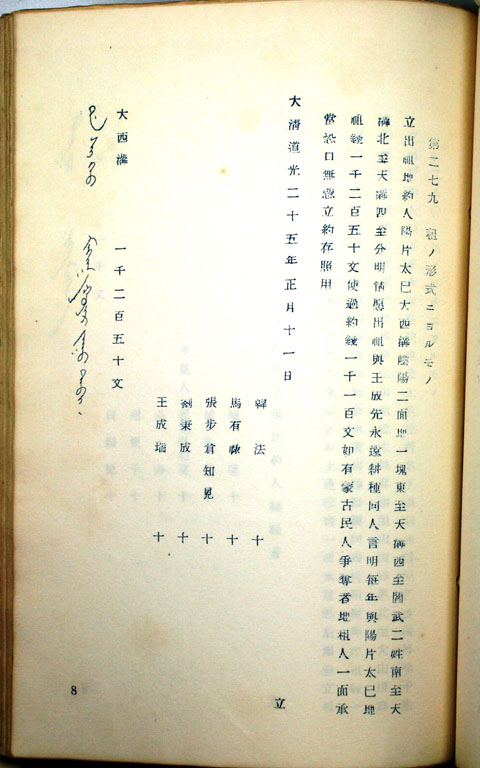 第二七九 租ノ形式ニヨルモノ
立出租地約人陽片太巳大西溝陰陽二面地一塊東至天溝西至閻武二姓南至天
溝北至天溝四至分明情愿出租與王成先永遠耕種同人言明每年與陽片太巳地
租錢一千二百五十文使過約錢一千一百文如有蒙古民人爭奪者地租人一面承
當恐口無憑立約存照用
大淸道光二十五年正月十一日
立
韓法 十
馬有 十
張步倉知見 十
劉秉成 十
王成瑞 十
大西溝 一千二百五十文
8